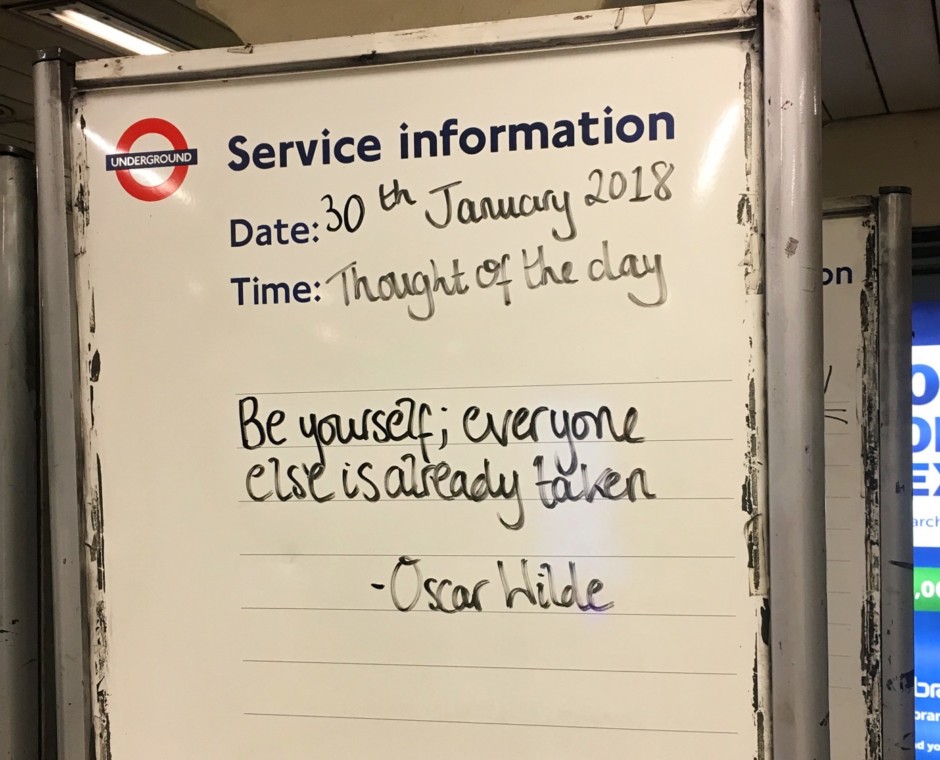 UNDERGROUND
Service information
Date: 30th January 2018
Time: Thought of the day
Be yourself; everyone
else is already taken
- Oscar Wilde
on